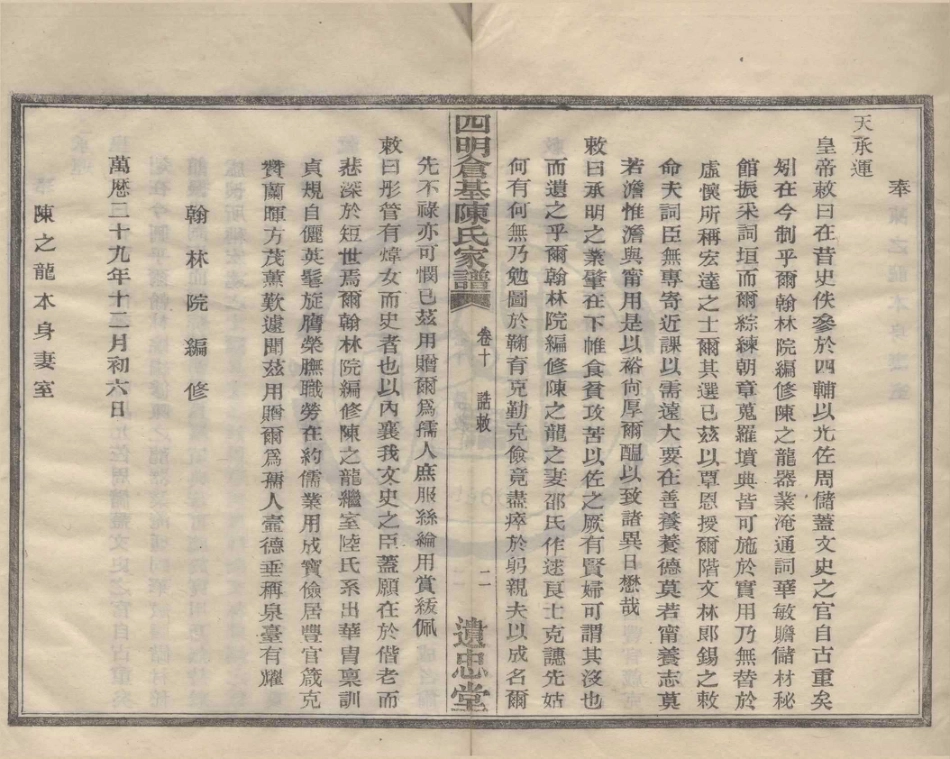 奉
天承運
皇帝敕曰在昔史佚參於四輔以光佐周儲蓋文史之官自古重矣
矧在今制乎爾翰林院編修陳之龍器業淹通詞華敏贍儲材秘
館振采詞垣而爾綜練朝章蒐羅墳典皆可施於實用乃無替於
虛懷所稱宏達之士爾其選已茲以覃恩授爾階文林郎錫之敕
命夫詞臣無專寄近課以需遠大要在善養養德莫若甯養志莫
若澹惟澹與甯用是以裕尚厚爾醞以致諸異日懋哉
敕曰承明之業肇在下帷食貧攻苦以佐之厥有賢婦可謂其沒也
而遺之乎爾翰林院編修陳之龍之妻邵氏作逑良士克讌先姑
何有何無乃勉圖於鞠育克勤克儉竟盡瘁於躬親夫以成名爾
四明倉基陳氏家譜
卷十 誥敕
二
遺忠堂
先不祿亦可憫已茲用贈爾爲孺人庶服絲綸用賞紱佩
敕曰彤管有煒女而史者也以內襄我文史之臣蓋願在於偕老而
悲深於短世焉爾翰林院編修陳之龍繼室陸氏系出華冑稟訓
貞規自儷英髦旋膺榮膴職勞在約儒業用成寶儉居豐官箴克
贊蘭暉方茂薰歎遽聞茲用贈爾爲孺人壼德垂稱泉臺有耀
萬曆三十九年十二月初六日
翰林院編修
陳之龍本身妻室